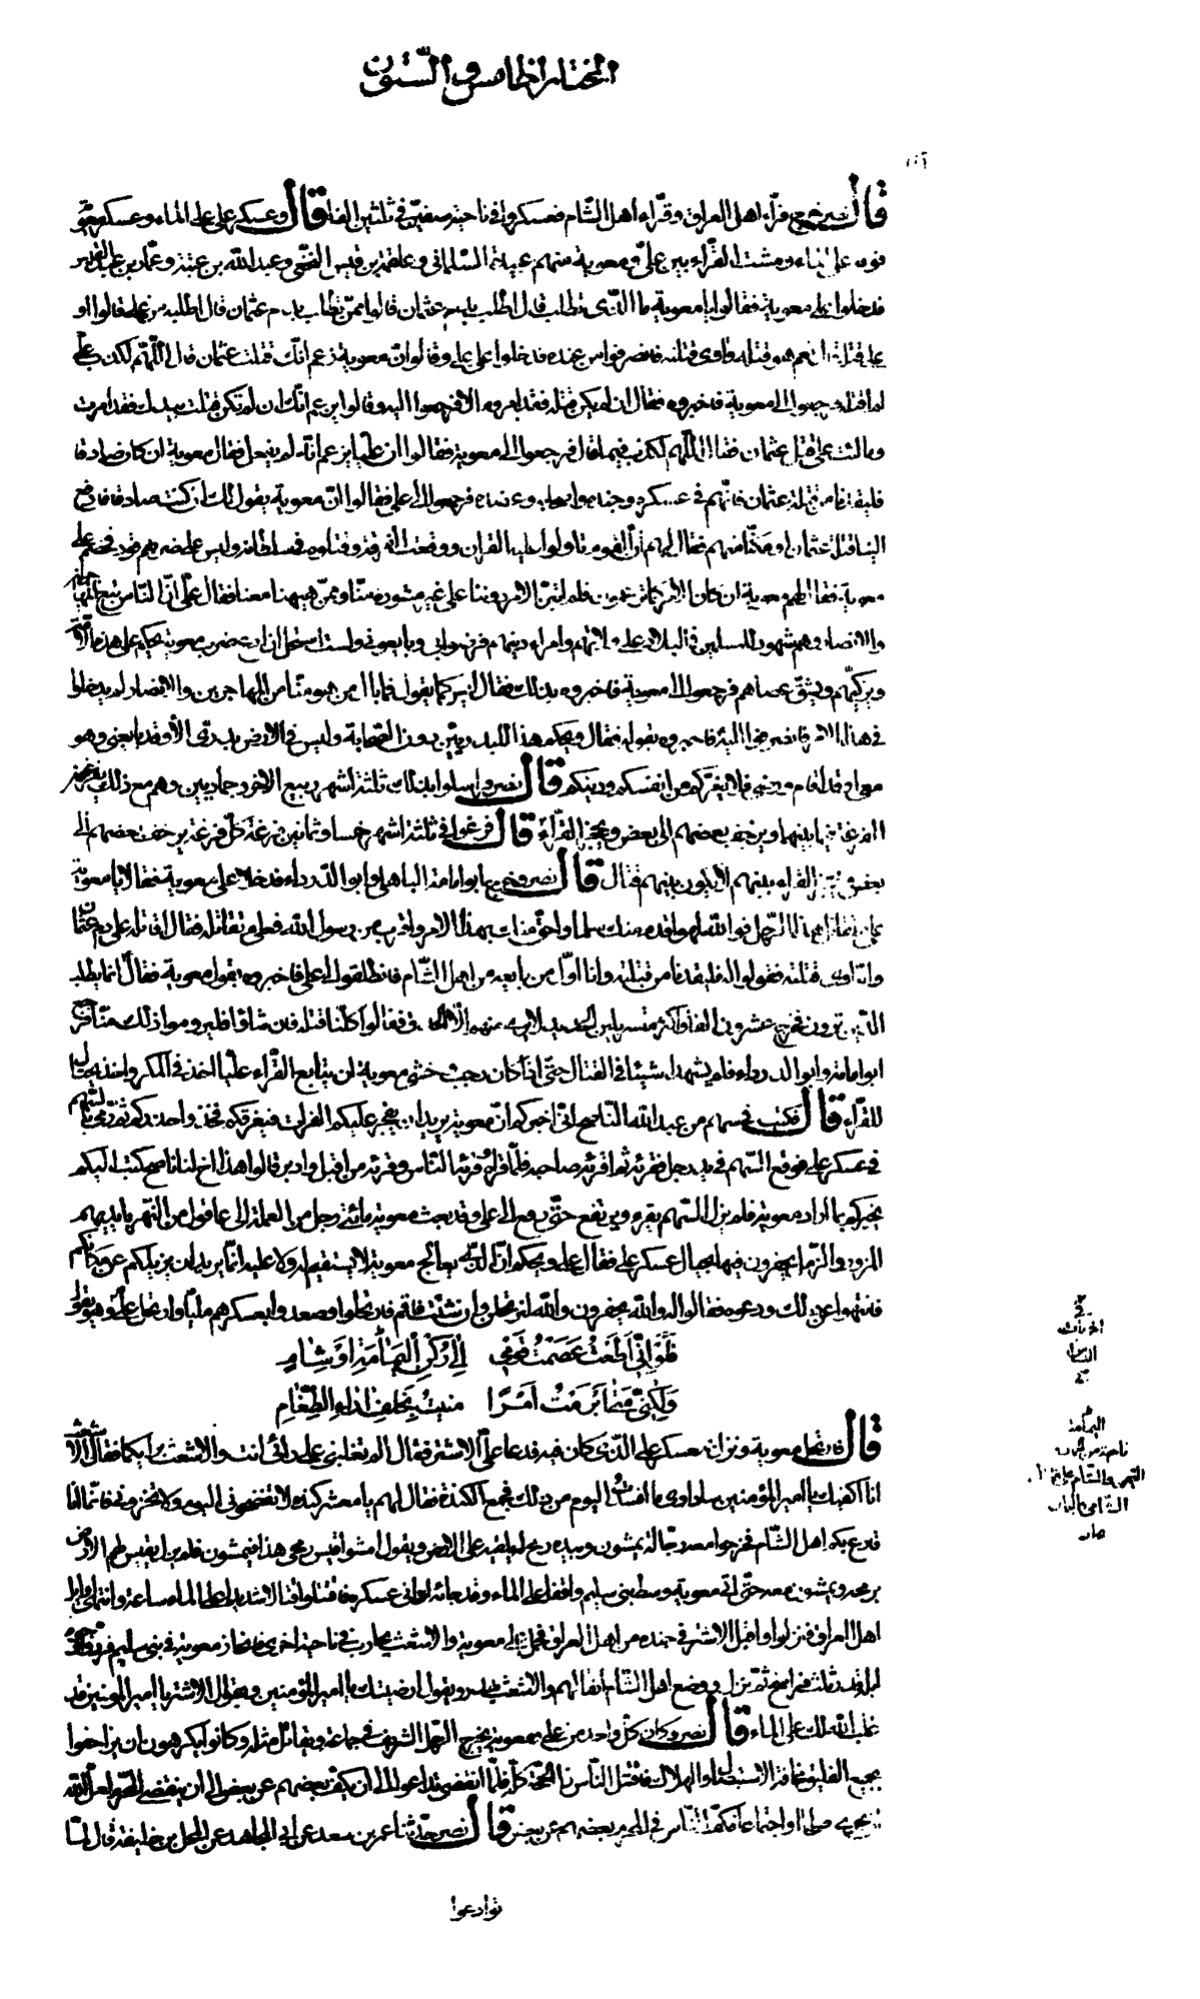 المختار الخامس والستون
قال نصر خرج قراء اهل العراق وقراء اهل الشام فعسكروا في ناحية صفين في ثلثين الفا قال وعسكر علي على الماء وعسكر معوية
فوق على الماء ومشت القراء بين علي ومعوية منهم عبيدة السلماني وعلقمة بن قيس النخعي وعبد الله بن عتبة وعامر بن عبد القيس
فدخلوا على معوية فقالوا يا معوية ما الذي تطلب قال اطلب بدم عثمان قالوا ممن تطلب بدم عثمان قال اطلبه من علي قالوا او
علي قتله قال نعم هو قتله واوى قتلته فانصرفوا من عنده فدخلوا على علي وقالوا ان معوية زعم انك قتلت عثمان قال اللهم لكذب علي
لم اقتله فرجعوا الى معوية فاخبروه فقال انه ان لم يكن قتله فقد امر فرجعوا اليه وقالوا يزعم انك ان لم تكن قتلت بيدك فقد امرت
ومالئت على قتل عثمان فقال اللهم لكذب فيما قال فرجعوا الى معوية فقالوا ان عليا يزعم انه لم يفعل فقال معوية ان كان صادقا
فليقدنا من قتلة عثمان فانهم في عسكره وجنده واصحابه وعضده فرجعوا الى علي فقالوا ان معوية يقول لك ان كنت صادقا فادفع
الينا قتلة عثمان او مكنا منهم فقال لهم ان القوم تاولوا عليه القران ووقعت الفرقة وقتلوه في سلطانه وليس على ضربهم قود فخصم علي
معوية فقال لهم معوية ان كان الامر كما تزعمون فلم ابتز الامر دوننا على غير مشورة منا وممن هيهنا معنا فقال علي ان الناس تبع المهاجرين
والانصار وهم شهود للمسلمين في البلاد على ولاتهم وامراء دينهم فرضوا بي وبايعوني ولست استحل ان ادع ضرب معوية يحكم على هذه الامة
ويركبهم ويشق عصاهم فرجعوا الى معوية فاخبروه بذلك فقال ليس كما يقول فما بال من هو هنا من المهاجرين والانصار لم يدخلوا
في هذا الامر فانصرفوا اليه فاخبروه بقوله فقال ويحكم هذا للبدريين دون الصحابة وليس في الارض بدري الا وقد بايعني وهو
معي او قد اقام ورضي فلا يغرنكم من انفسكم ودينكم قال نصر وتراسلوا بذلك ثلثة اشهر ربيع الاخر وجماديين وهم مع ذلك
الفزعة فيما بينهما ويزحف بعضهم الى بعض وتحجز القراء قال فزعوا في ثلثة اشهر خمسا وثمانين فزعة كل فزعة يزحف بعضهم الى
بعض وتحجز القراء بينهم لا يكون بينهم قتال قال نصر وخرج ابو امامة الباهلي وابو الدرداء فدخلا على معوية فقالا يا معوية
علام تقاتل هذا الرجل فو الله لهو اقدم منك سلما واحق منك بهذا الامر واقرب من رسول الله فعلى م تقاتله فقال اقاتله على دم عثمان
وانه اوى قتلته فقولوا له فليقدنا من قتلته وانا اول من بايعه من اهل الشام فانطلقوا الى علي فاخبروه بقول معوية فقال انما يطلب
الذين ترون فخرج عشرون الفا او اكثر متسربلين الحديد لا يرى منهم الا الحدق فقالوا كلنا قتله فان شاؤا فليروموا ذلك منا فرجع
ابو امامة وابو الدرداء فلم يشهدا شيئا في القتال حتى اذا كان رجب خشي معوية ان يتابع القراء عليا اخذ في المكر واخذ يحتال
للقراء قال فكتب في سهم من عبد الله الناصح اني اخبركم ان معوية يريد ان يفجر عليكم الفرات فيغرقكم فخذوا حذركم ثم رمى بالسهم
في عسكر علي فوقع السهم في يد رجل فقرئه ثم اقرئه صاحبه فلما قراه وقرئه الناس وقرئه من اقبل وادبر قالوا هذا اخ لنا ناصح كتب اليكم
يخبركم بما اراد معوية فلم يزل السهم يقرء ويرتفع حتى رفع الى علي وقد بعث معوية مائتي رجل من العملة الى عاقول من النهر بايديهم
المرور والزبل يحفرون فيها بحيال عسكر علي فقال علي ويحكم ان الذي يعالج معوية لا يستقيم له ولا عليه انما يريد ان يزيلكم عن مكانكم
فانتهوا عن ذلك ودعوه فقالوا له والله يحفرون والله لنرتحلن وان شئت فاقم فارتحلوا وصعدوا بعسكرهم مليا وارتحل علي وهو يقول
فلو اني اطعت عصمت قومي الى ركن اليمامة او شام
ولكني متى ابرمت امرا منيت بخلف اراء الطغام
قال فارتحل معوية ونزل معسكر علي الذي كان فيه فدعا علي الاشتر فقال الم تغلبني على رائي انت والاشعث برايكما فقال الاشعث
انا اكفيك يا امير المؤمنين ساداوي ما افسدت اليوم من ذلك فجمع الكندة فقال لهم يا معشر كندة لا تفضحوني اليوم ولا تخزوني فانما انا
اقارع بكم اهل الشام فخرجوا معه رجالة يمشون وبيده رمح له يلقيه على الارض ويقول امشوا قيس رمحي هذا فيمشون فلم يزل يقيس لهم الارض
برمحه ويمشون معه حتى اتى معوية وسط بني سليم واقفا على الماء وقد جائه اداني عسكره فاقتتلوا قتالا شديدا على الماء ساعة وانتهى اوائل
اهل العراق فنزلوا واقبل الاشتر في جنده من اهل العراق فحمل على معوية والاشعث يحارب في ناحية اخرى فانحاز معوية في بني سليم فردوا وجوه
ابله قدر ثلث فراسخ ثم نزل ووضع اهل الشام اثقالهم والاشعث يهدر ويقول ارضيتك يا امير المؤمنين ويقول الاشتر يا امير المؤمنين قد
غلب الله لك على الماء قال نصر وكان كل واحد من علي ومعوية يخرج الرجل الشريف في جماعة ويقاتل مثله وكانوا يكرهون ان يزاحفوا
بجميع الفيلق مخافة الاستيصال والهلاك فاقتتل الناس ذا الحجة كله فلما انقضى تداعوا الى ان يكف بعضهم عن بعض الى ان ينقضي المحرم لعل الله
ان يجري صلحا او اجتماعا فكف الناس في المحرم بعضهم عن بعض قال نصر حدثنا عمر بن سعد عن ابي المجاهد عن المحل بن خليفة قال لما
توادعوا
اليمامة